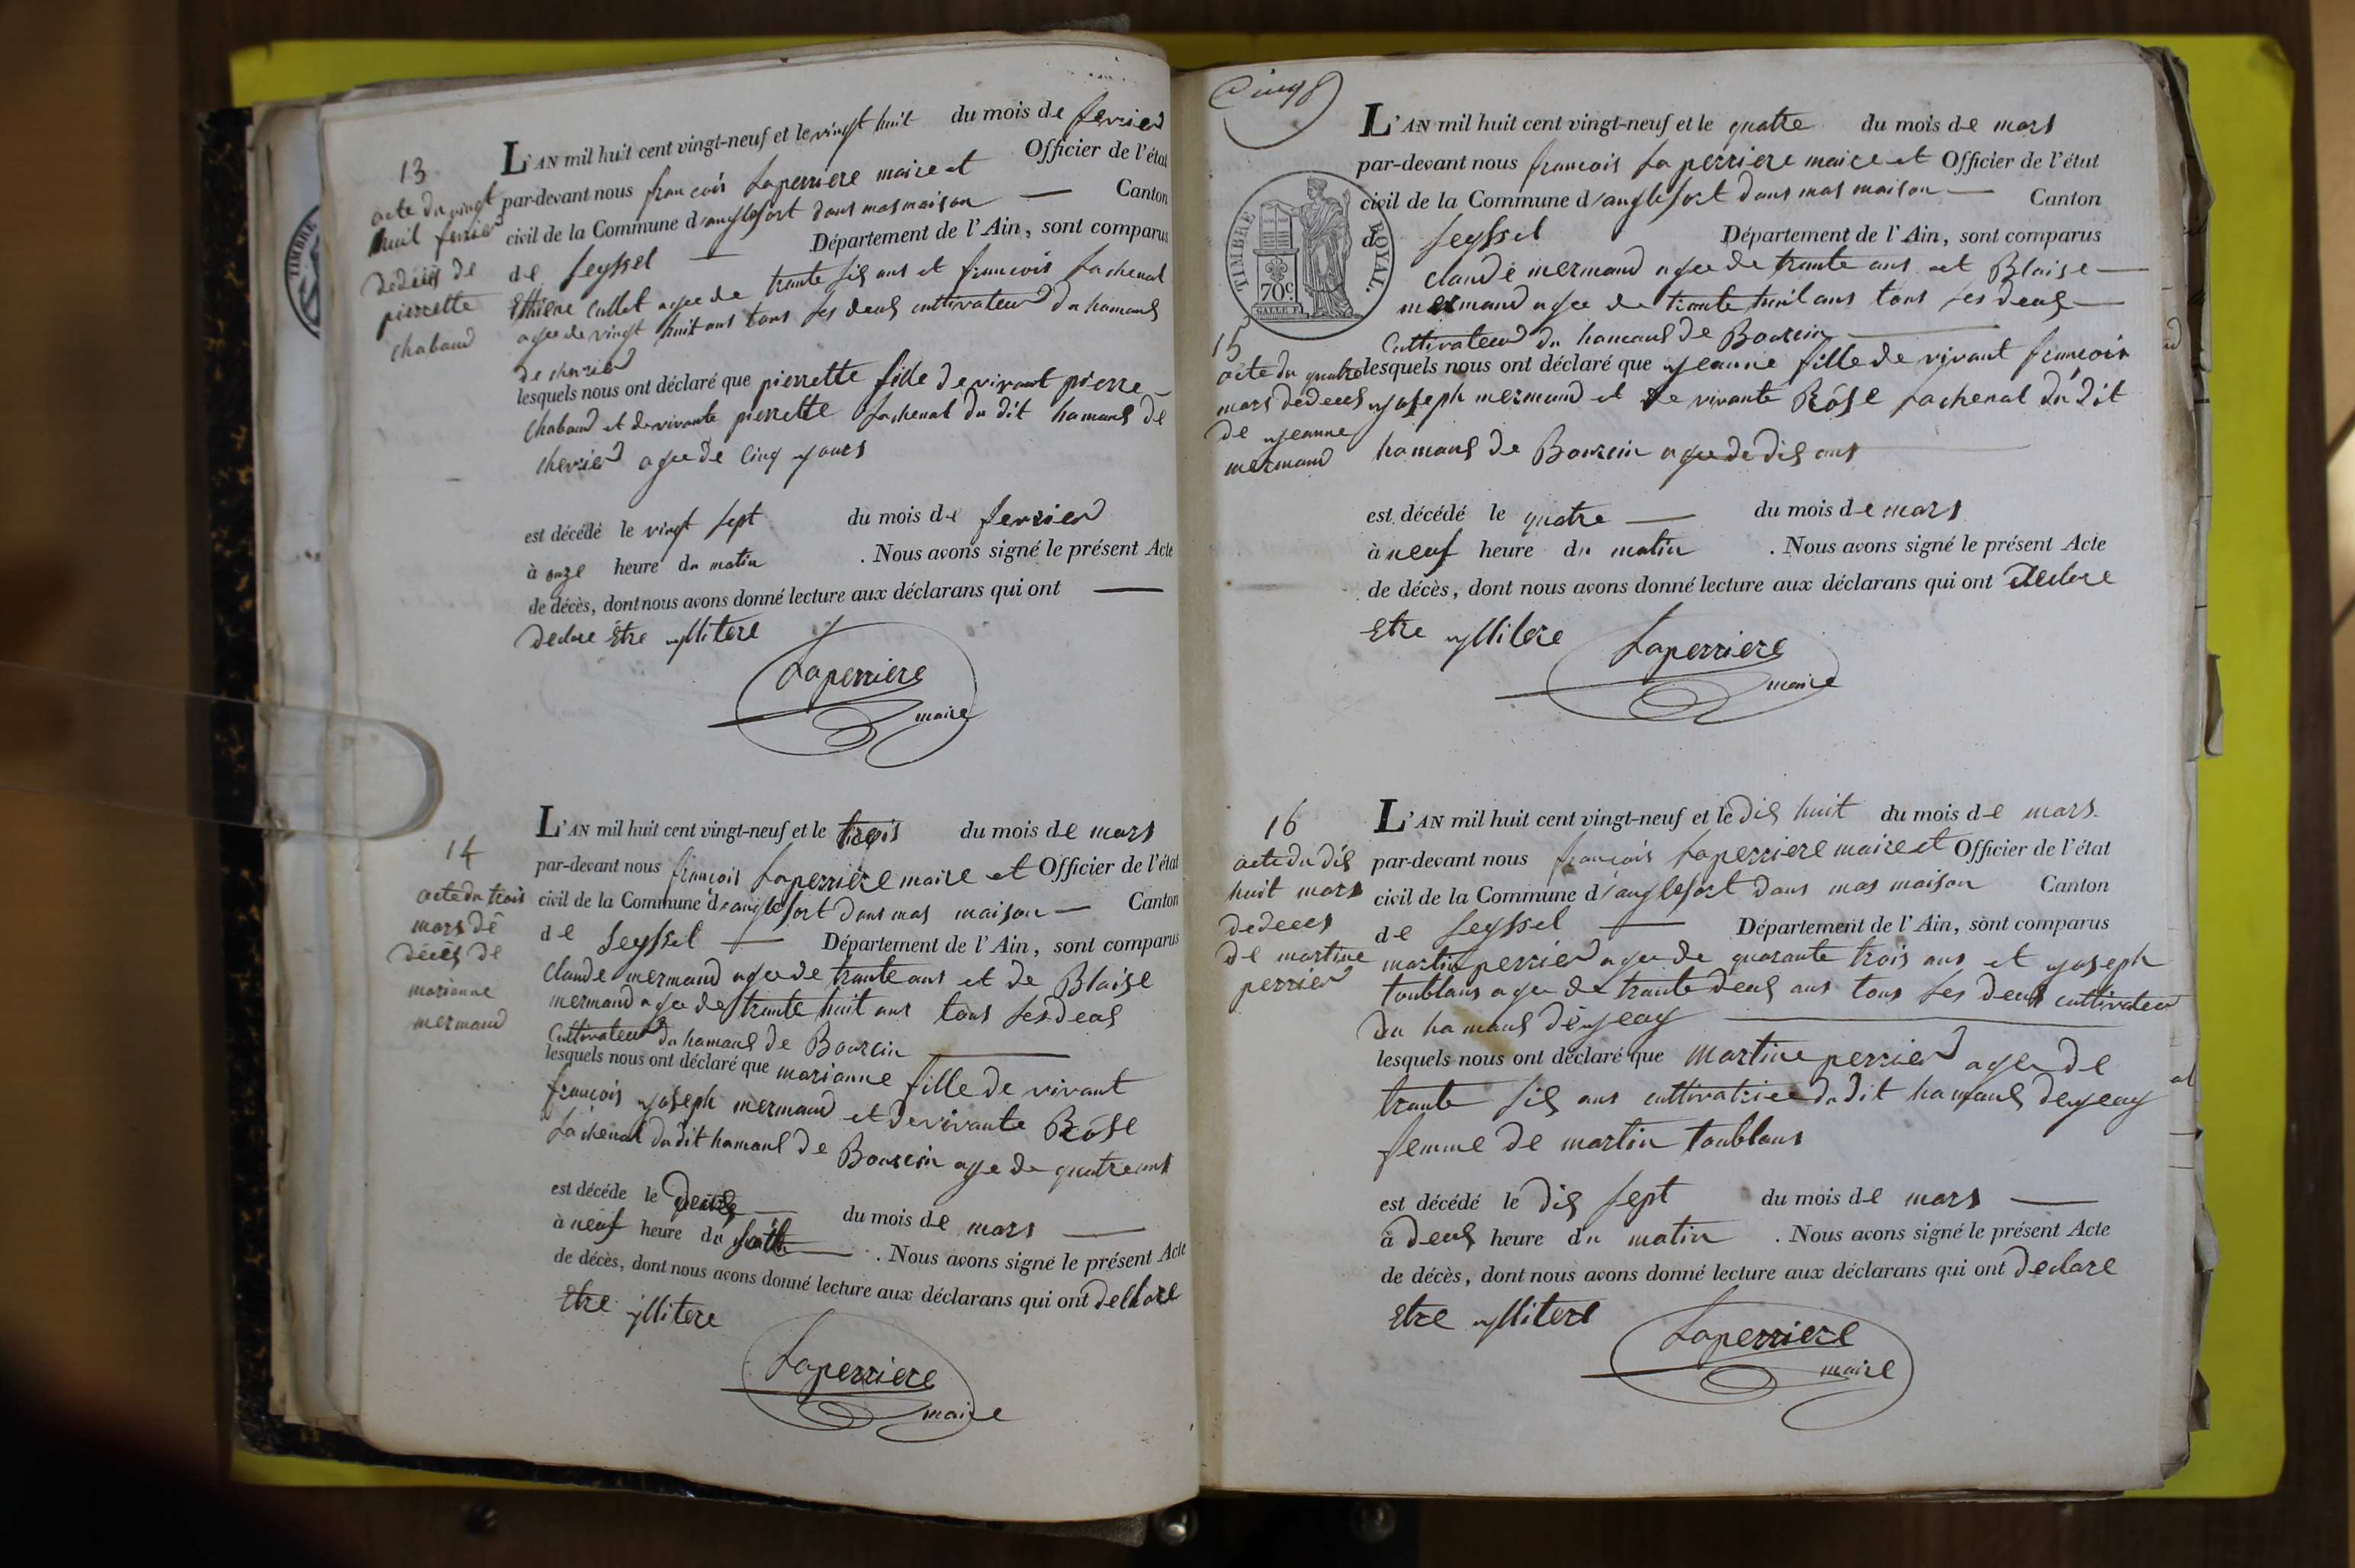 13
acte du vingt
huit fevrier
dedecès de
pierrette
chabaud
L'AN mil huit cent vingt-neuf et le vingt huit du mois de fevrier
par-devant nous francois Laperriere maire et Officier de l'état
civil de la Commune d'anglefort dans mas maison — Canton
de Seyssel — Département de l'Ain, sont comparus
Ethiene Cullet agee de trante sis ans et francois Lachenal
agee de vingt huit ans tous les deus cultivateur du hamaus
de cherier
lesquels nous ont déclaré que pierrette fille de vivant pierre
chabaud et de vivante pierrette Lachenal du dit hamaus de
cherier agee de cinq yours
est décédé le vingt sept du mois de fevrier
à onze heure du matin . Nous avons signé le présent Acte
de décès, dont nous avons donné lecture aux déclarans qui ont —
declare Etre yllitere
Laperriere
maire
14
acte du trois
mars de
décès de
marianne
mermand
L'AN mil huit cent vingt-neuf et le trois du mois de mars
par-devant nous francois Laperriere maire et Officier de l'état
civil de la Commune d'anglefort dans mas maison — Canton
de Seyssel — Département de l'Ain, sont comparus
Claude mermand agee de trante ans et de Blaise
mermand agee de trante huit ans tous les deus
Cultivateur du hamaus de Bourcin —
lesquels nous ont déclaré que marianne fille de vivant
francois yoseph mermand et de vivante Rose
Lachenal du dit hamaus de Bourcin age de quatre ans
est décédé le deus — du mois de mars —
à neuf heure du — . Nous avons signé le présent Acte
de décès, dont nous avons donné lecture aux déclarans qui ont declare
Etre yllitere
Laperriere
maire
Cinq
TIMBRE ROYAL.
70c
15
acte du quatre
mars dedeces
de yeanne
mermand
L'AN mil huit cent vingt-neuf et le quatre du mois de mars
par-devant nous francois Laperriere maire et Officier de l'état
civil de la Commune d'anglefort dans mas maison — Canton
de Seyssel Département de l'Ain, sont comparus
claude mermand agee de trante ans et Blaise —
mermand agee de trante huit ans tous les deus —
Cultivateur du hamaus de Bourcin —
lesquels nous ont déclaré que yeanne fille de vivant francois
yoseph mermand et de vivante Rose Lachenal du dit
hamaus de Bourcin agee de dis ans
est décédé le quatre — du mois de mars
à neuf heure du matin . Nous avons signé le présent Acte
de décès, dont nous avons donné lecture aux déclarans qui ont declare
Etre yllitere
Laperriere
maire
16
acte du dis
huit mars
dedeces
de martine
perrier
L'AN mil huit cent vingt-neuf et le dis huit du mois de mars
par-devant nous francois Laperriere maire et Officier de l'état
civil de la Commune d'anglefort dans mas maison Canton
de Seyssel — Département de l'Ain, sont comparus
martin perrier agee de quarante trois ans et yoseph
toublans agee de trante deus ans tous les deus cultivateur
du hamaus deyeay —
lesquels nous ont déclaré que martine perrier agee de
trante sis ans cultivatrice du dit hamaus deyeay
femme de martin toublans
est décédé le dis sept du mois de mars —
à deus heure du matin . Nous avons signé le présent Acte
de décès, dont nous avons donné lecture aux déclarans qui ont declare
Etre yllitere
Laperriere
maire